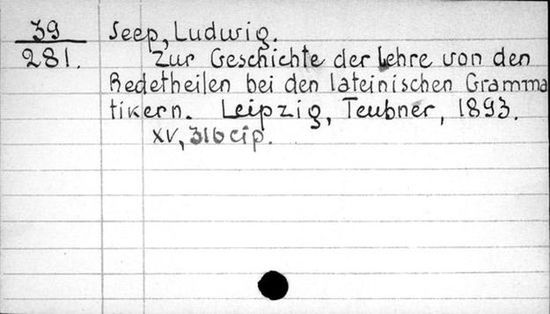 39
281.
Jeep, Ludwig.
Zur Geschichte der Lehre von den
Redetheilen bei den lateinischen Gramma
tikern. Leipzig, Teubner, 1893.
XV, 316 cip.